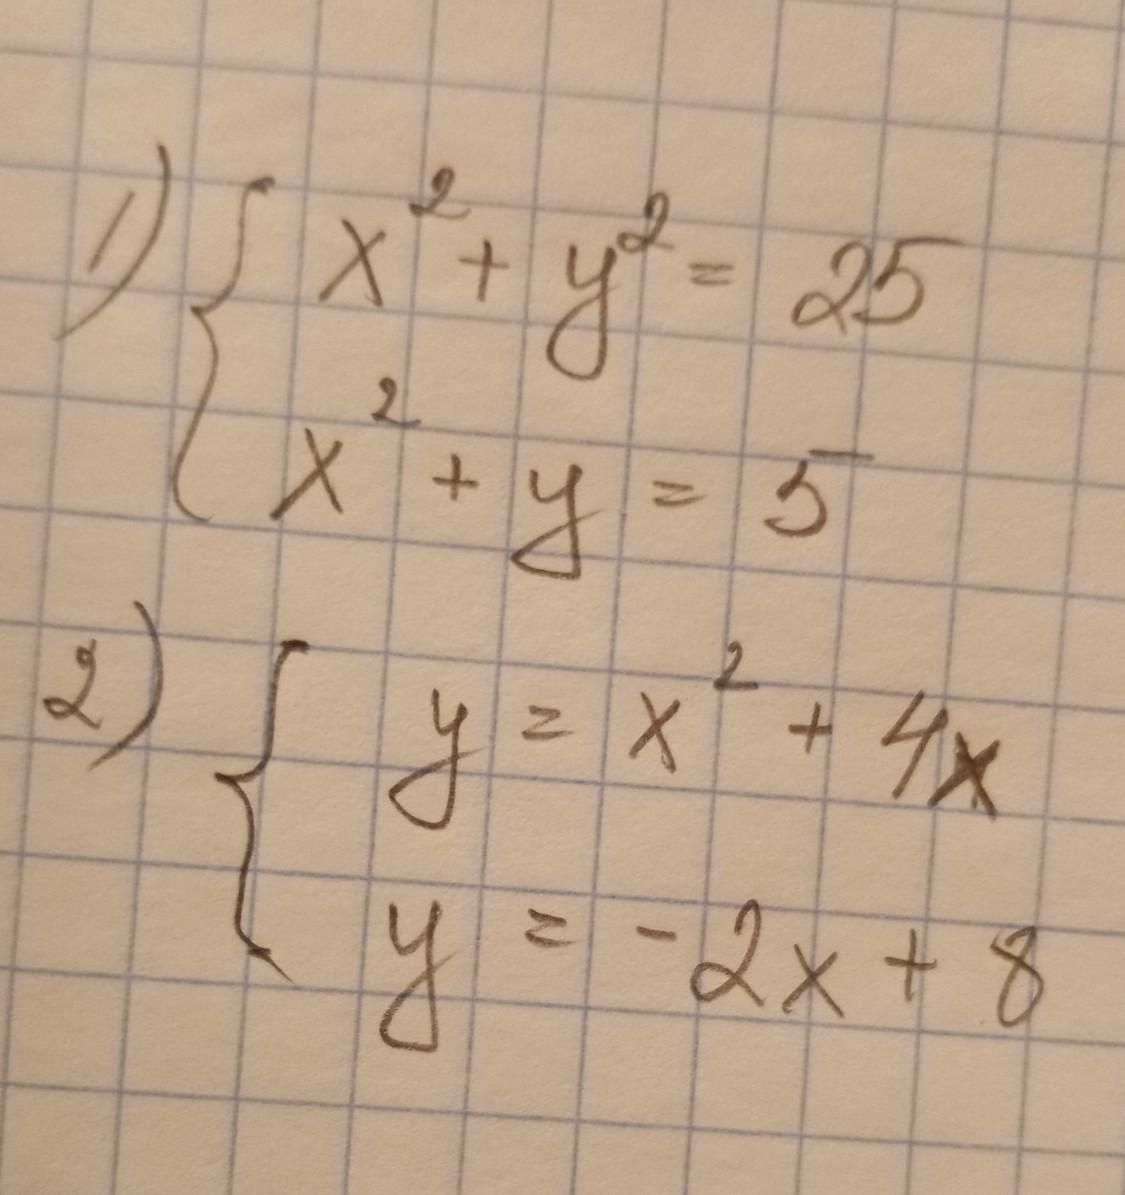 1) { x² + y² = 25
x² + y = 5
2) { y = x² + 4x
y = -2x + 8